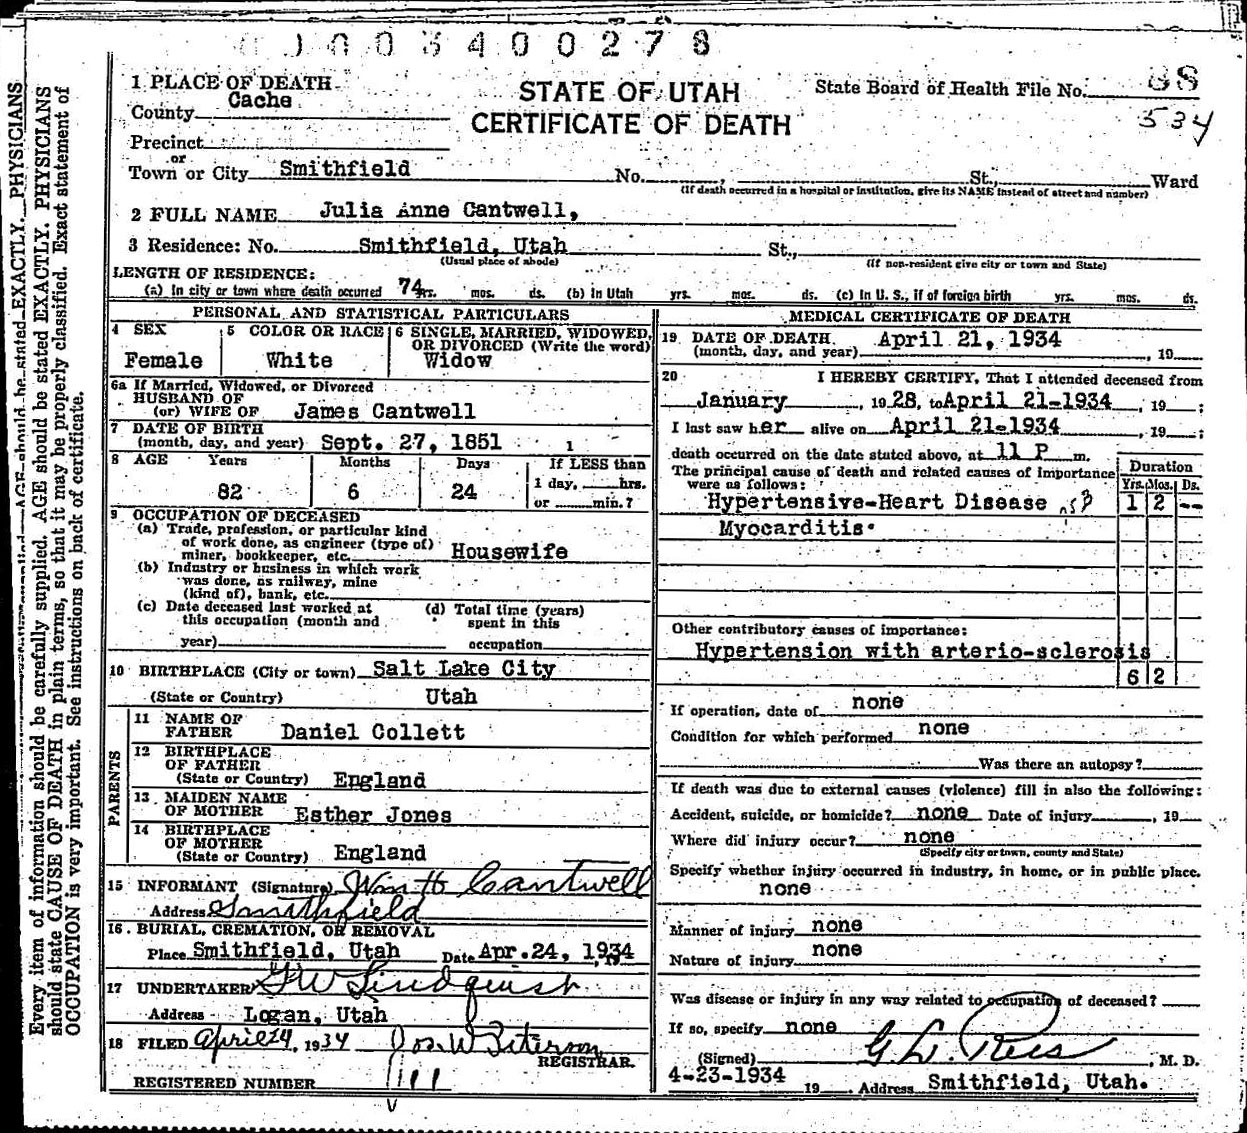 0003400278
1 PLACE OF DEATH
STATE OF UTAH
CERTIFICATE OF DEATH
State Board of Health File No. 88
534
County Cache
Precinct
or
Town or City Smithfield No. St., Ward
(If death occurred in a hospital or institution, give its NAME instead of street and number)
2 FULL NAME Julia Anne Cantwell,
3 Residence: No. Smithfield, Utah St.,
(Usual place of abode) (If non-resident give city or town and State)
LENGTH OF RESIDENCE:
(a) In city or town where death occurred 74 yrs. mos. ds. (b) in Utah yrs. mos. ds. (c) In U. S., if of foreign birth yrs. mos. ds.
PERSONAL AND STATISTICAL PARTICULARS
4 SEX 5 COLOR OR RACE 6 SINGLE, MARRIED, WIDOWED,
OR DIVORCED (Write the word)
Female White Widow
6a If Married, Widowed, or Divorced
HUSBAND OF
(or) WIFE OF James Cantwell
7 DATE OF BIRTH
(month, day, and year) Sept. 27, 1851
8 AGE Years Months Days If LESS than
1 day, hrs.
82 6 24 or min.?
9 OCCUPATION OF DECEASED
(a) Trade, profession, or particular kind
of work done, as engineer (type of)
miner, bookkeeper, etc. Housewife
(b) Industry or business in which work
was done, as railway, mine
(kind of), bank, etc.
(c) Date deceased last worked at (d) Total time (years)
this occupation (month and spent in this
year) occupation
10 BIRTHPLACE (City or town) Salt Lake City
(State or Country) Utah
PARENTS
11 NAME OF
FATHER Daniel Collett
12 BIRTHPLACE
OF FATHER
(State or Country) England
13 MAIDEN NAME
OF MOTHER Esther Jones
14 BIRTHPLACE
OF MOTHER
(State or Country) England
15 INFORMANT (Signature) Wm H Cantwell
Address Smithfield
16 BURIAL, CREMATION, OR REMOVAL
Place Smithfield, Utah Date Apr. 24, 1934
17 UNDERTAKER G W Lindquist
Address Logan, Utah
18 FILED April 24, 1934 Jos. W Peterson
REGISTRAR.
REGISTERED NUMBER 11
MEDICAL CERTIFICATE OF DEATH
19 DATE OF DEATH April 21, 1934
(month, day, and year) , 19
20 I HEREBY CERTIFY, That I attended deceased from
January , 1928, to April 21-1934 , 19 ;
I last saw her alive on April 21-1934 , 19 ;
death occurred on the date stated above, at 11 P m.
The principal cause of death and related causes of importance
were as follows: Duration
Yrs. Mos. Ds.
Hypertensive-Heart Disease 1 2 --
Myocarditis.
Other contributory causes of importance:
Hypertension with arterio-sclerosis
6 2
If operation, date of none
Condition for which performed none
Was there an autopsy?
If death was due to external causes (violence) fill in also the following:
Accident, suicide, or homicide? none Date of injury , 19
Where did injury occur? none
(Specify city or town, county and State)
Specify whether injury occurred in industry, in home, or in public place.
none
Manner of injury none
Nature of injury none
Was disease or injury in any way related to occupation of deceased?
If so, specify none
(Signed) G. L. Rees , M. D.
4-23-1934 19 Address Smithfield, Utah.
Every item of information should be carefully supplied. AGE should be stated EXACTLY. PHYSICIANS
should state CAUSE OF DEATH in plain terms, so that it may be properly classified. Exact statement of
OCCUPATION is very important. See instructions on back of certificate.